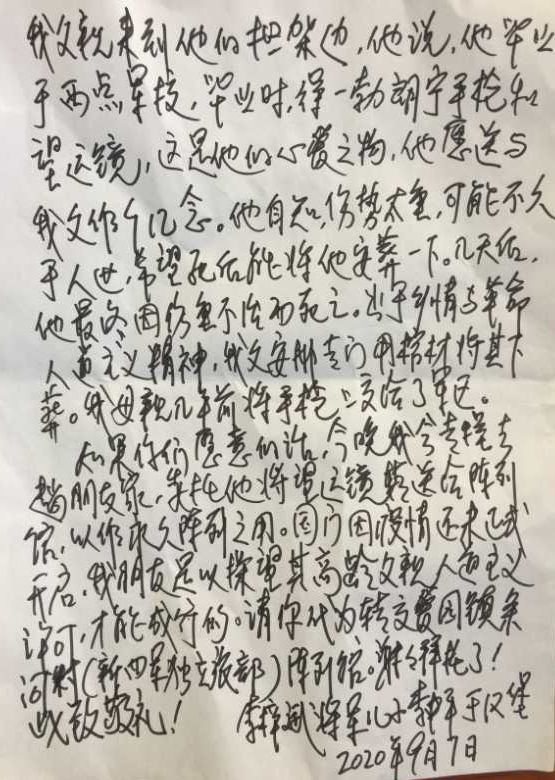 我父亲来到他们担架边,他说,他毕业
于西点军校,毕业时,得一勃朗宁手枪和
望远镜,这是他的心爱之物,他愿送与
我父作个记念。他自知,伤势太重,可能不久
于人世,希望死后能将他安葬一下。几天后,
他最终因伤重不治而死亡。出于乡情与革命
人道主义精神,我父安排专门用棺材将其下
葬。我母亲几年前将手枪上交给了军区。
如果你们愿意的话,今晚我会专程去
趟朋友家,委托他将望远镜转送给陈列
馆,以作永久陈列之用。国门因疫情还未正式
开启,我朋友是以探望其高龄父亲人道主义
许可,才能成行的。请你代为转交
村(新四军独立旅部)陈列馆。谢谢拜托了!
此致敬礼!将军儿子于汉堡
2020年9月7日